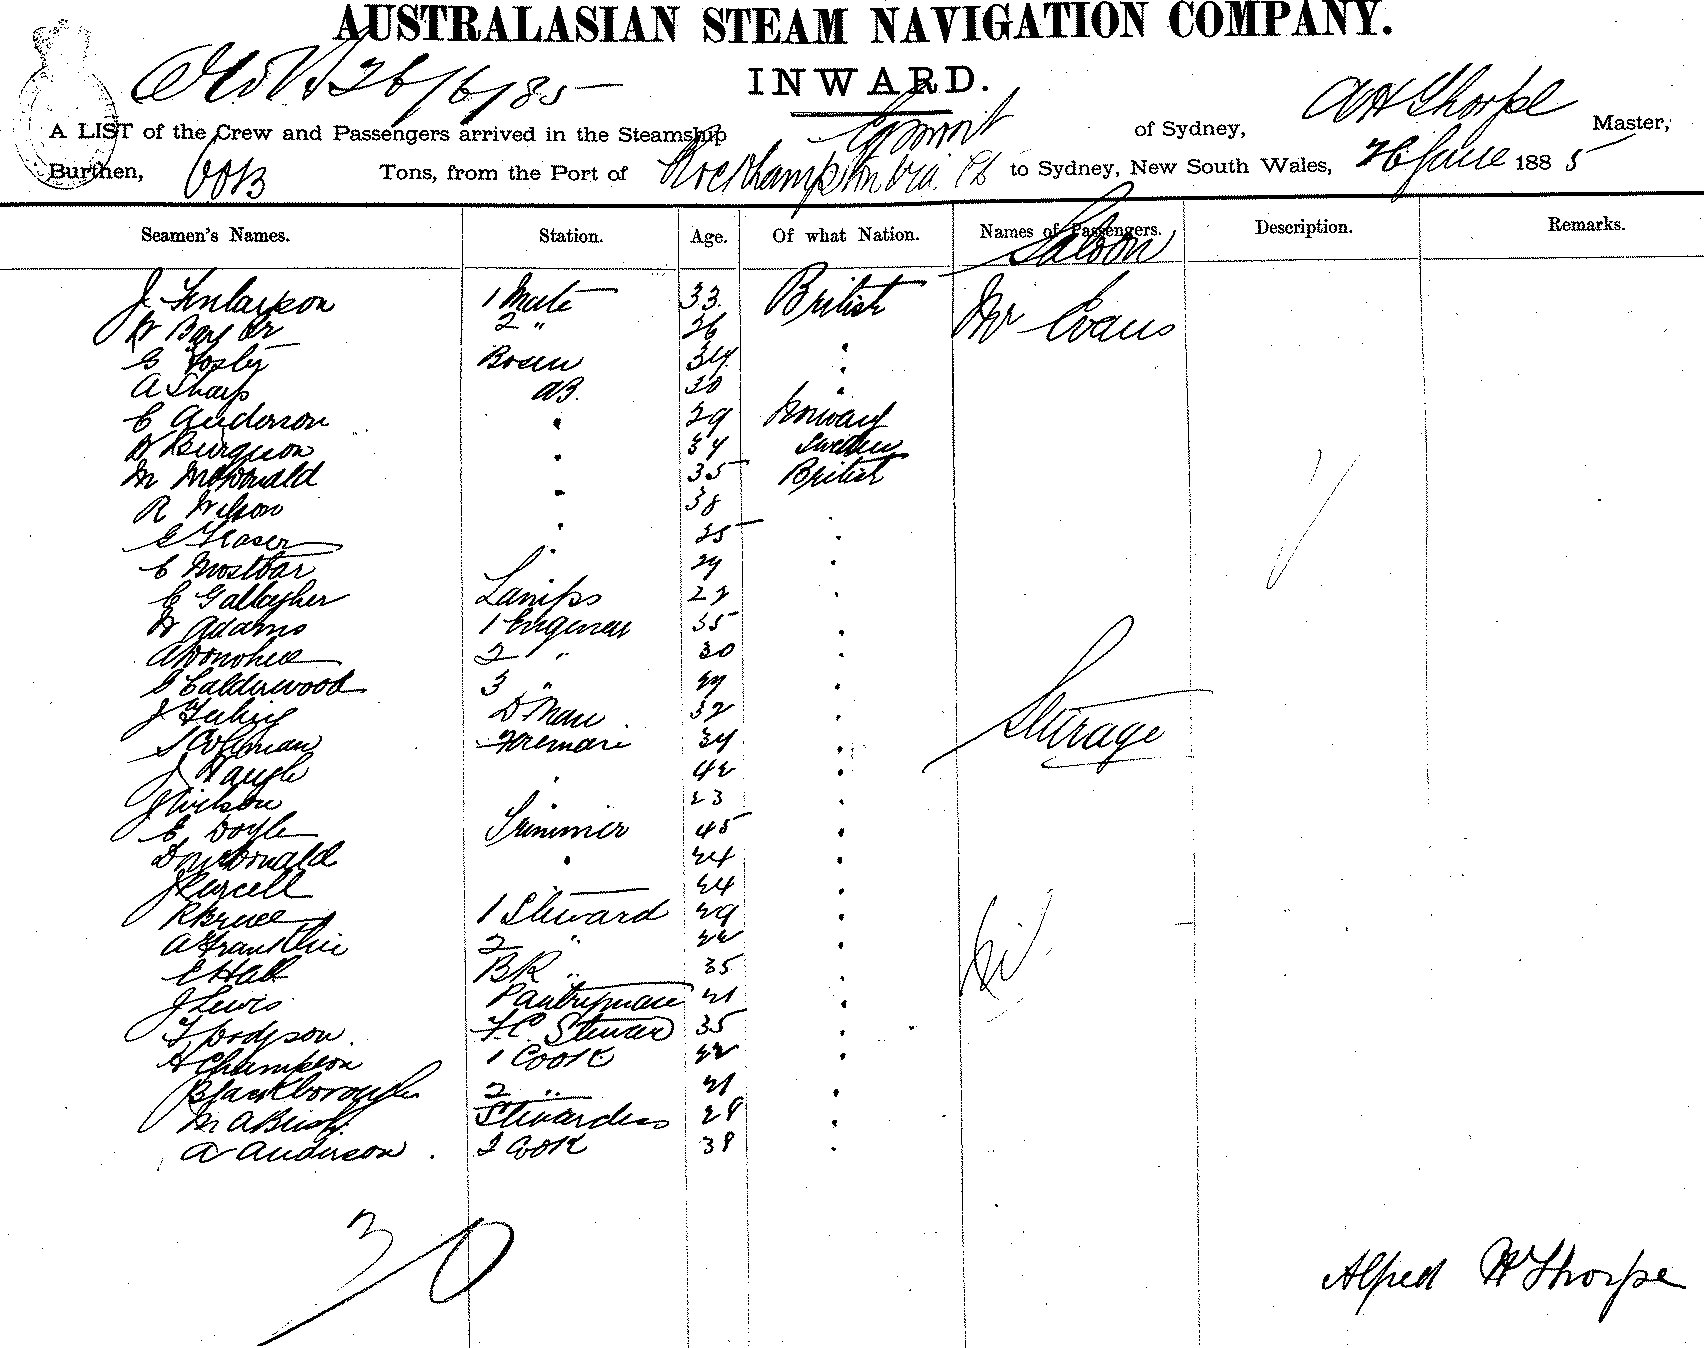 AUSTRALASIAN STEAM NAVIGATION COMPANY.
26/6/85 INWARD.
A LIST of the Crew and Passengers arrived in the Steamship Egmont of Sydney, A H Thorpe Master,
Burthen, Tons, from the Port of Rockhampton via to Sydney, New South Wales, 26 June 1885
Seamen's Names. Station. Age. Of what Nation. Names of Passengers. Description. Remarks.
Saloon
J. Finlayson 1 Mate 33 British Mr Evans
W 2 " 26 "
G Foster Bosun 34 "
A Sharp AB. 30 "
C Anderson " 29 Norway
W " 34 Sweden
M McDonald " 35 British
R Wilson " 38 "
Fraser " 25 "
C " 29 "
C Gallagher Lamps 22 "
W Adams 1 Engineer 35 "
A Donohue 2 " 30 "
Calderwood 3 " "
J D Man 32 "
Steerage
S Coleman Fireman 34 "
J Waugh " 42 "
J Wilson 23 "
E Doyle Trimmer 45 "
D McDonald " 24 "
J Purcell 24 "
R Bruce 1 Steward 29 "
A Franklin 2 " 22 "
Nil
E Hall BK " 35 "
J Lewis Pantryman 21 "
T Dodgson F.C. Steward 35 "
H Champion 1 Cook 22 "
Blackborough 2 " 21 "
M A Stewardess 28 "
A Anderson. 2 Cook 38 "
30
Alfred H Thorpe